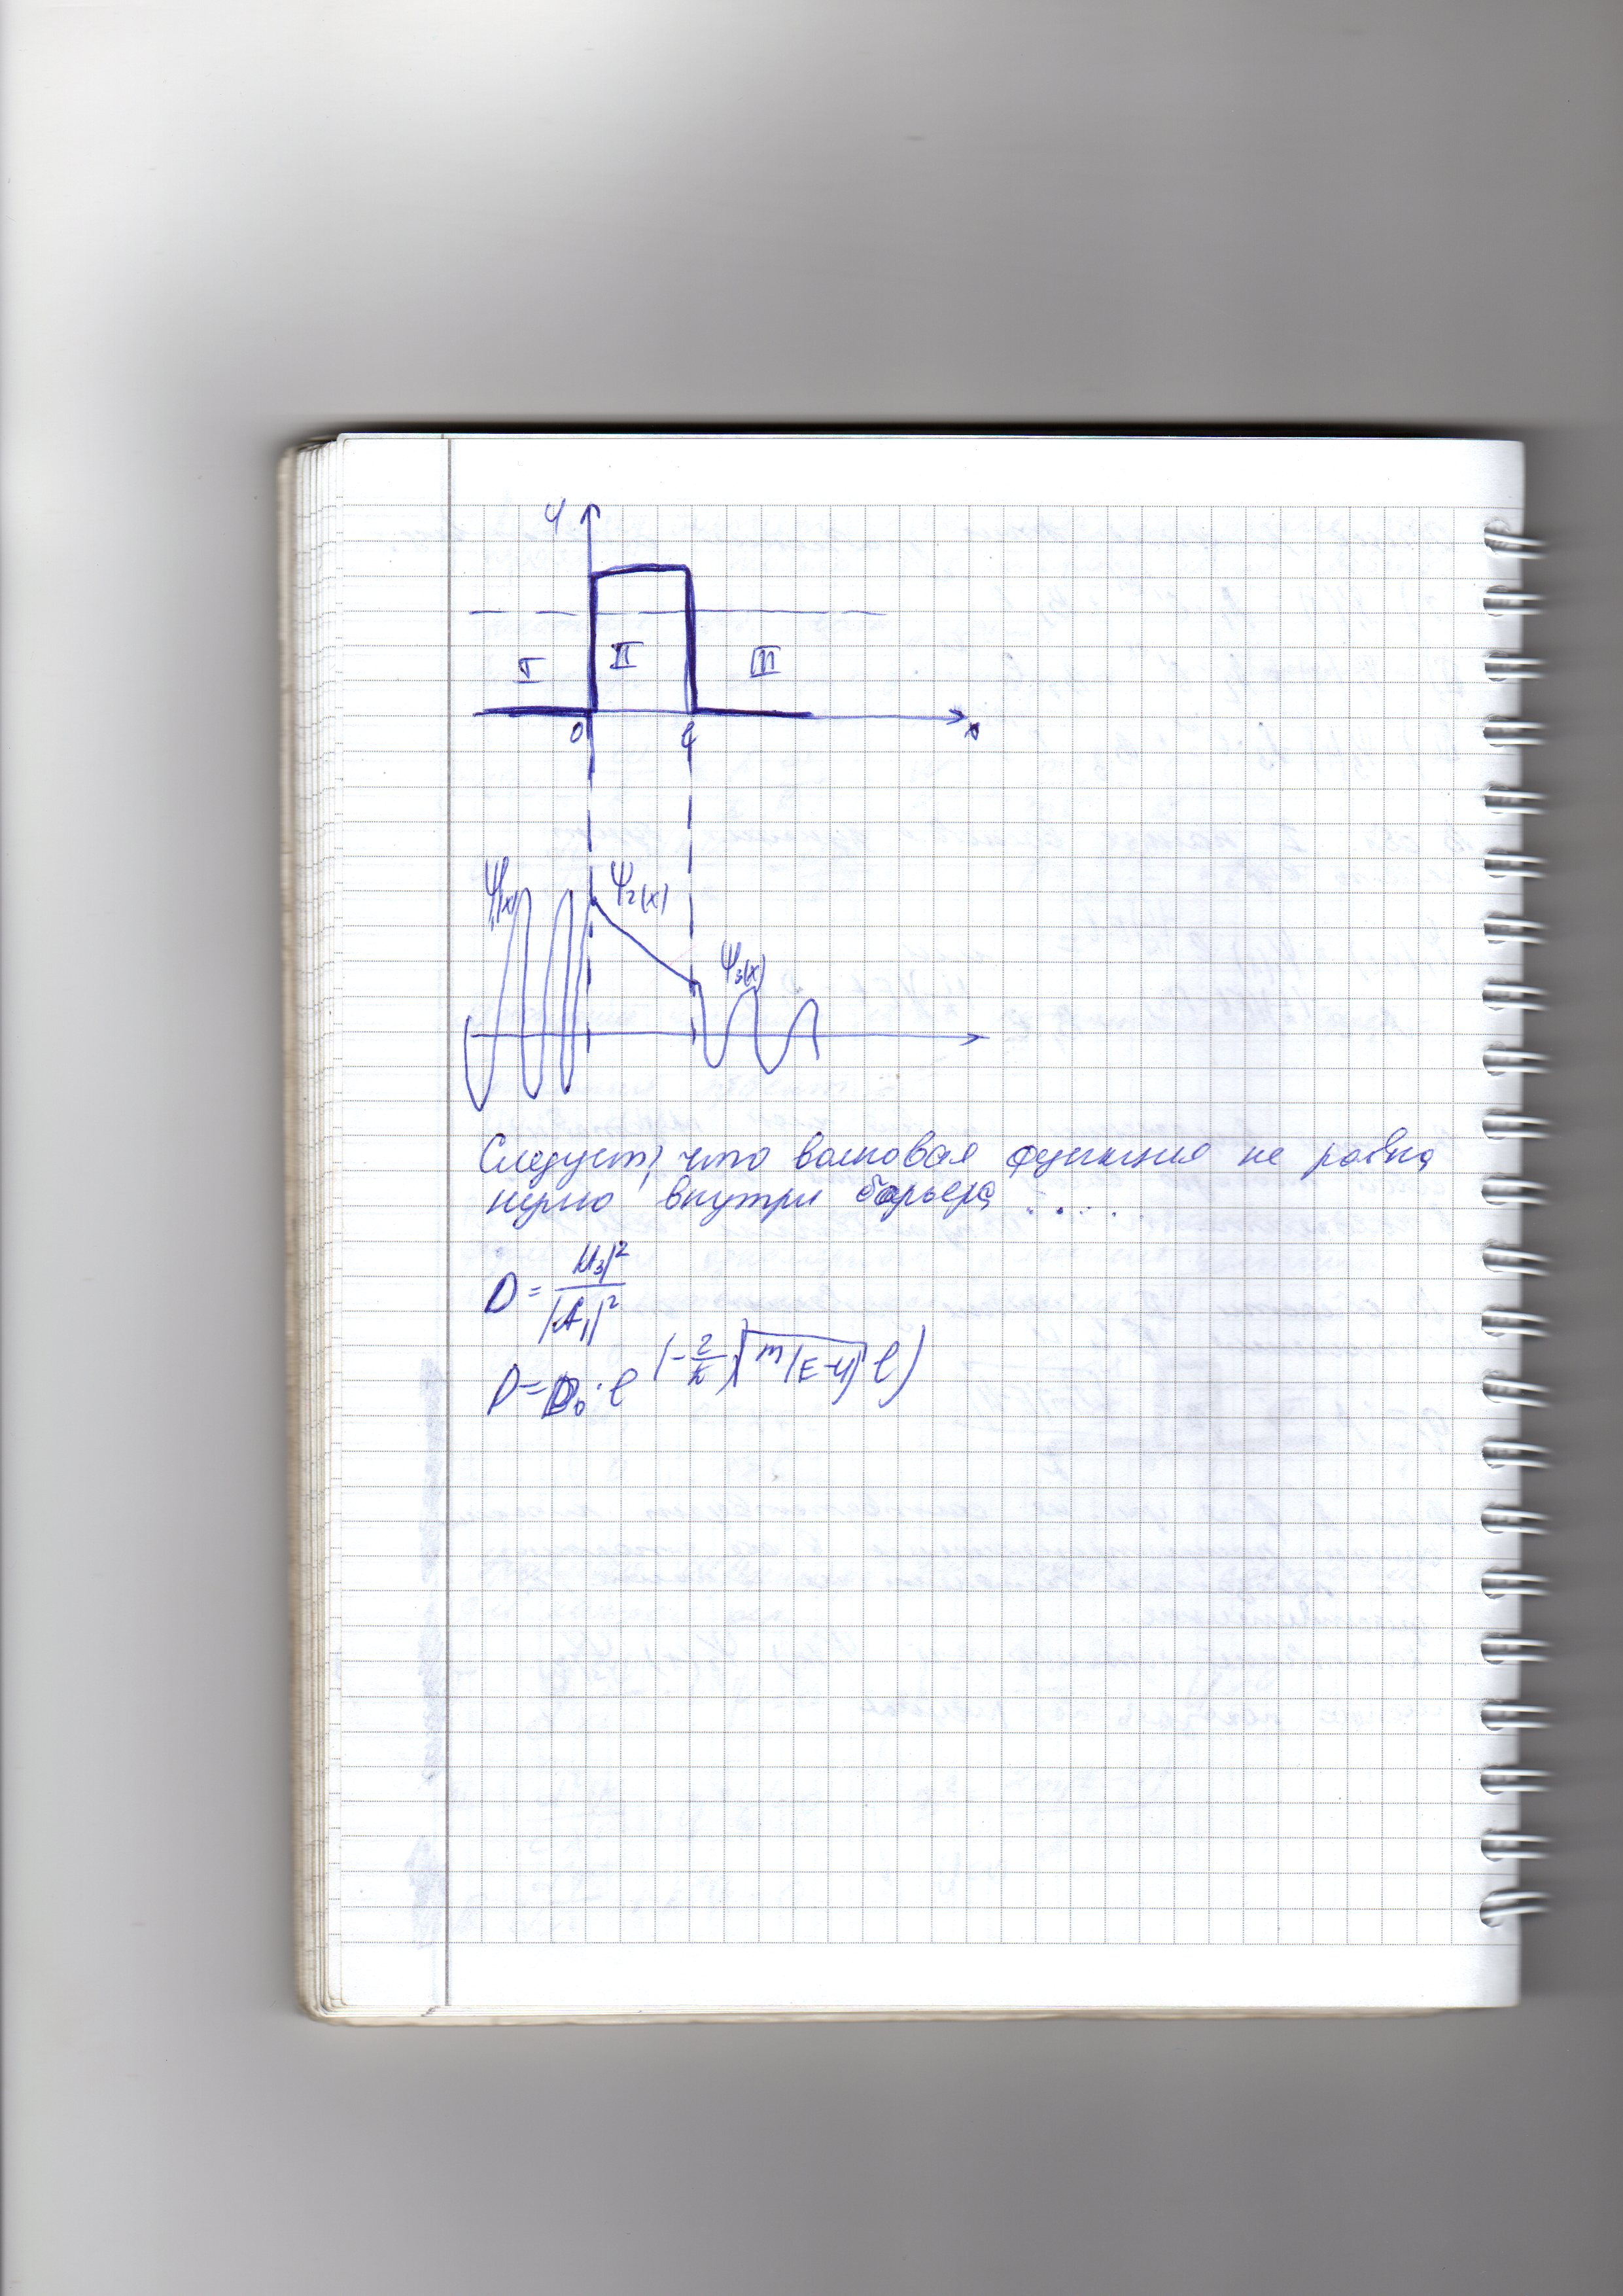 U
I II III
0 l x
Ψ₁(x) Ψ₂(x)
Ψ₃(x)
Следует, что волновая функция не равна
нулю внутри барьера . . . . .
D = |A₃|² / |A₁|²
D = D₀ · e^(-2/ħ √(m(E-U)) l)